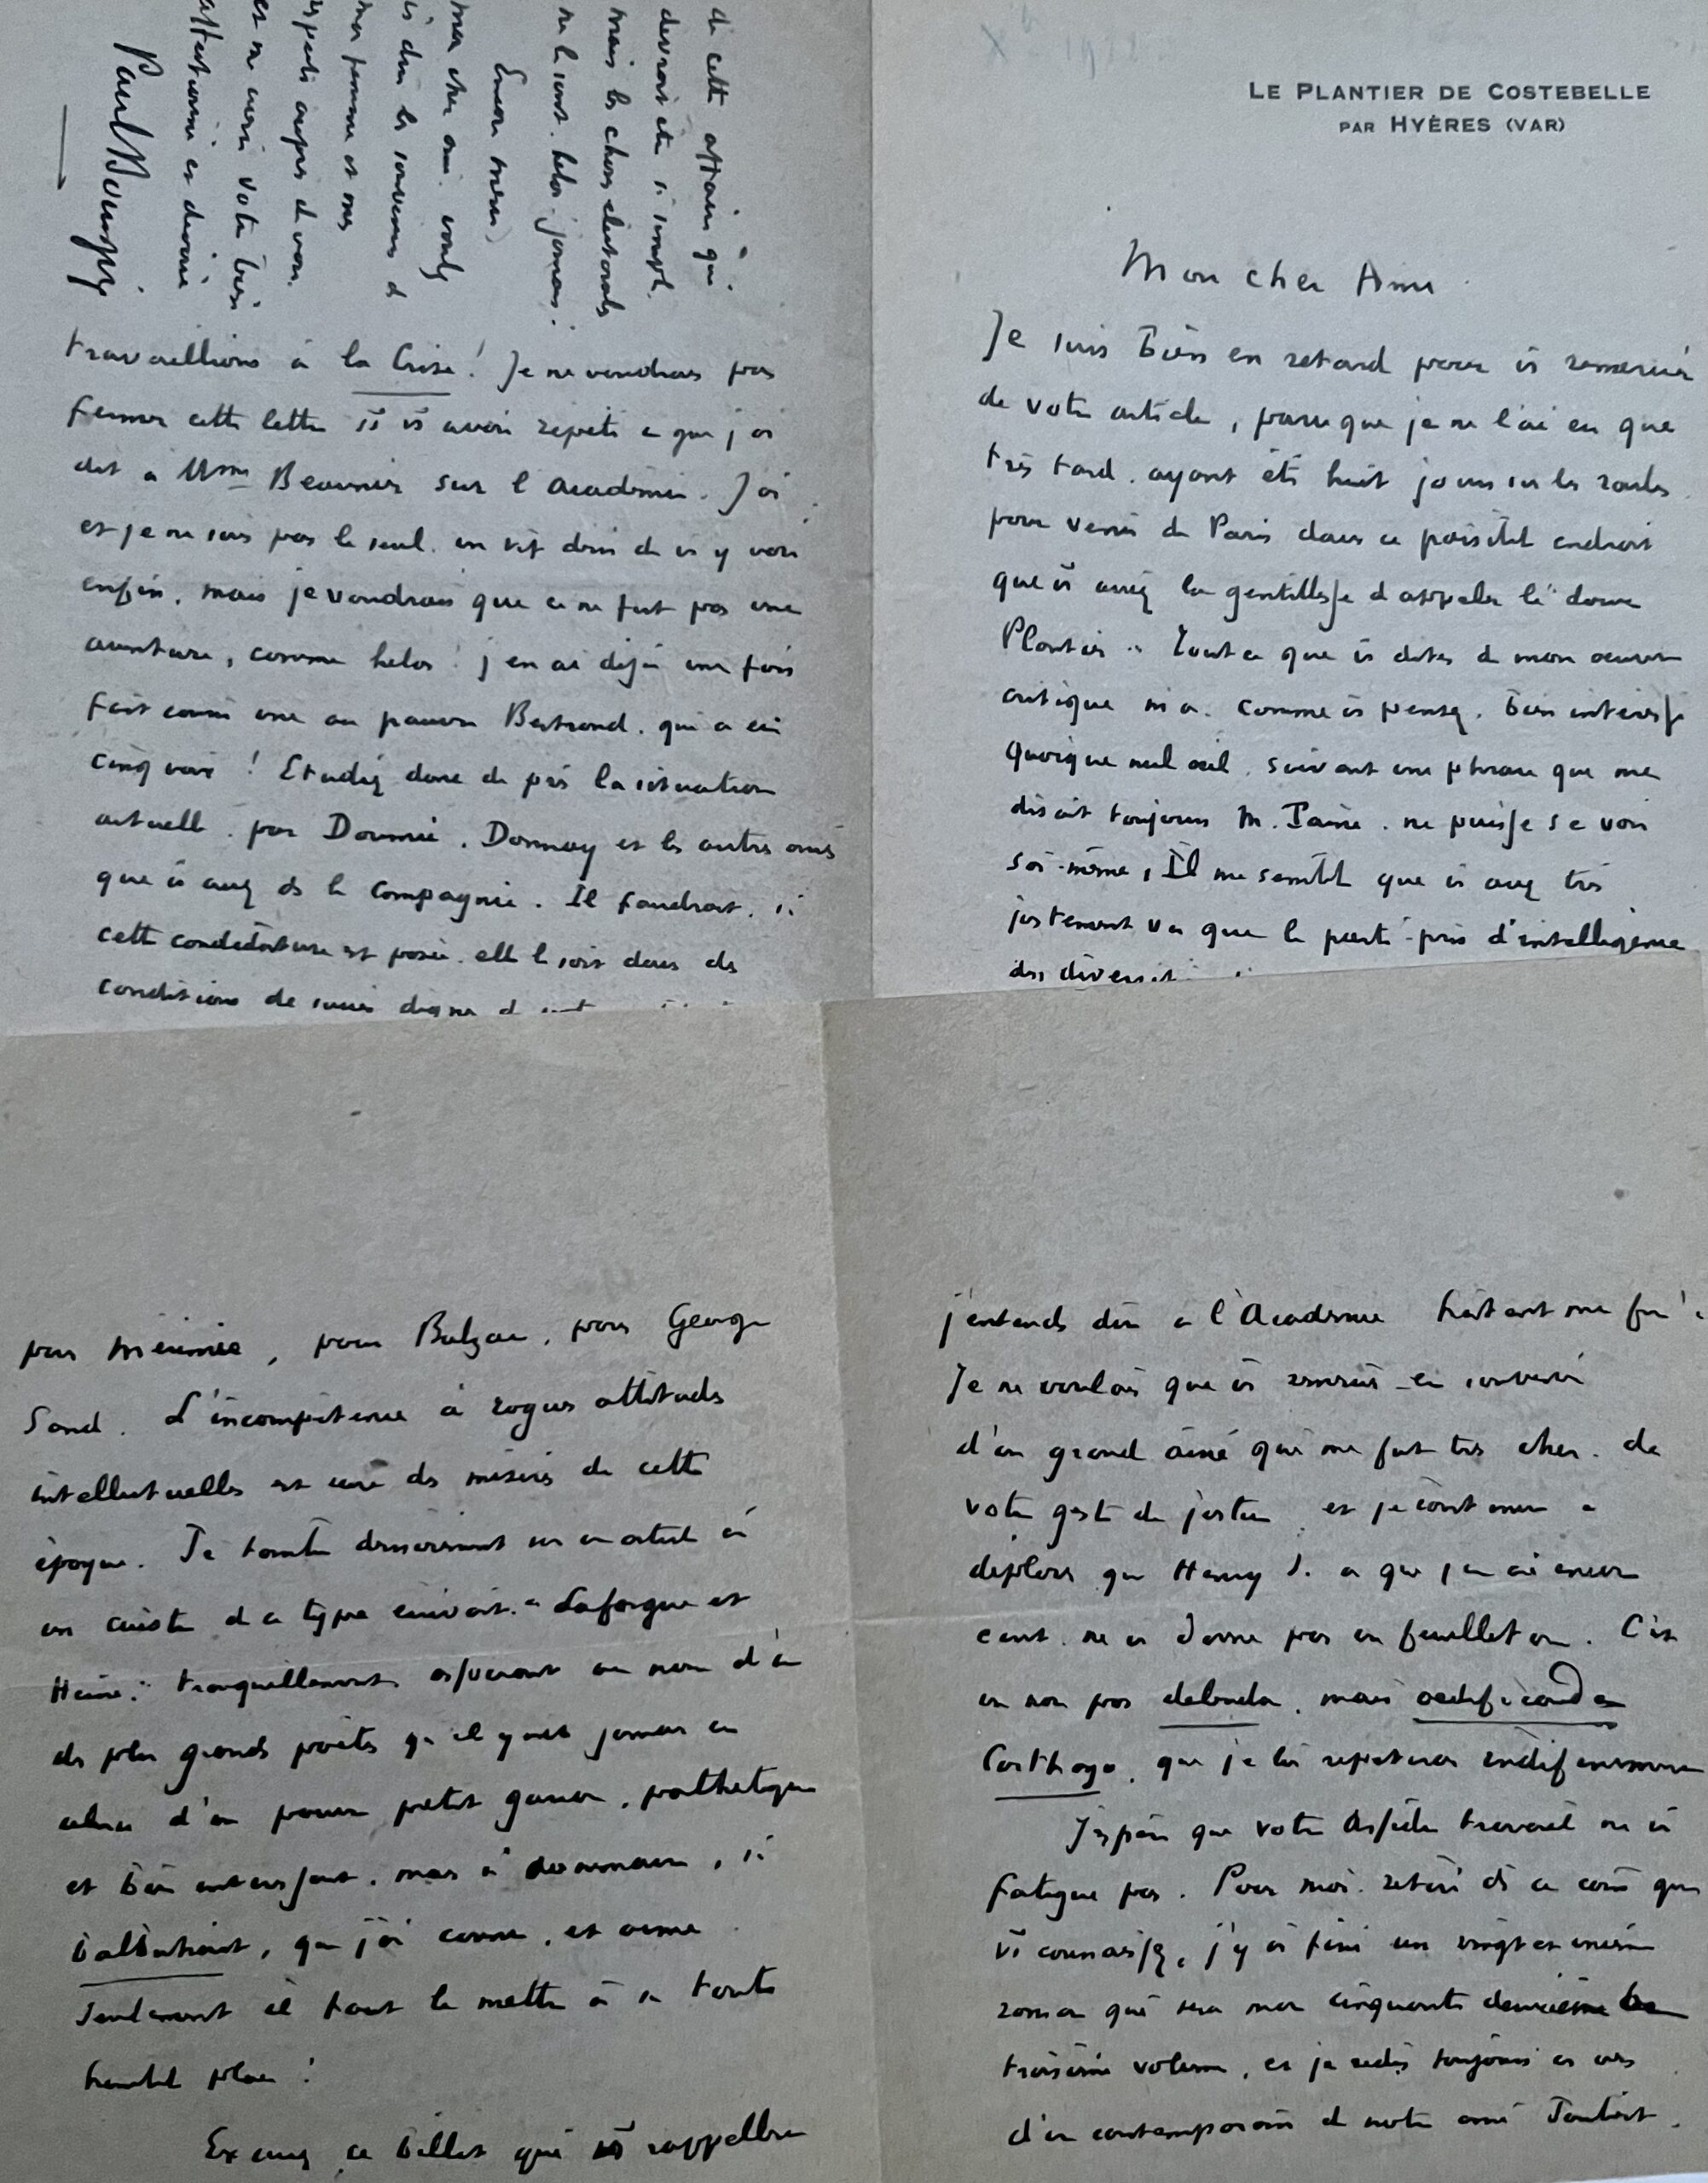 LE PLANTIER DE COSTEBELLE
PAR HYÈRES (VAR)
Mon cher Ami
Je suis bien en retard pour vs remercier
de votre article, parce que je ne l'ai eu que
très tard. ayant été huit jours sur les routes
pour venir de Paris dans ce paisible endroit
que vs avez la gentillesse d'appeler le doux
Plantier". Tout ce que vs dites de mon oeuvre
critique m'a. comme vs pensez. bien intéressé
quoique nul oeil, suivant une phrase que me
disait toujours M. Taine. ne puisse se voir
soi-même, Il me semble que vs avez très
justement vu que le parti-pris d'intelligence
des
travaillions à la Crise! Je ne voudrais pas
fermer cette lettre ss vs avoir répété ce que j'ai
dit à Mme Beaunier sur l'Académie. J'ai
et je ne suis pas le seul. un vif désir de vs y voir
enfin, mais je voudrais que ce ne fut pas une
aventure, comme helas! j'en ai déjà une fois
fait courir une au pauvre Bertrand. qui a eu
cinq voix! Etudiez donc de près la situation
actuelle. par Doumic. Donnay et les autres amis
que vs avez ds la Compagnie. Il faudrait. si
cette candidature est posée. elle le soit dans des
conditions de succès digne
de cette affaire qui
devrait être si simple.
mais les choses électorales
ne le sont. helas. jamais.
Encore merci,
mon cher ami. voulez
vs dire les souvenirs de
ma femme et mes
respects auprès de vous.
et me croire votre bien
affectionné et dévoué
Paul Bourget
pour Mérimée, pour Balzac, pour George
Sand. L'incompétence à rogues attitudes
intellectuelles est une des misères de cette
époque. Je tombe dernièrement sur un article où
un cuistre de ce type écrivait. "Laforgue et
Heine." tranquillement associant au nom d'un
des plus grands poètes qu'il y ait jamais eu
celui d'un pauvre petit garçon, pathétique
et bien intéressant. mais si, si
balbutiant, que j'ai connu, et aimé
Seulement il faut le mettre à sa toute
humble place!
Excusez ce billet qui vs rappellera
j'entends dire à l'Académie
Je ne voulais que vs remercier en souvenir
d'un grand ainé qui me fut très cher. de
votre geste de justice. et je continue à
déplorer que Henry S. à qui j'en ai encore
écrit. ne vs donne pas un feuilleton. C'est
un non pas delenda, mais aedificanda
Carthago, que je lui répéterai indéfiniment
J'espère que votre assidu travail ne vs
fatigue pas. Pour moi. retiré ds ce coin que
vs connaissez, j'y ai fini un vingt et unième
roman qui sera mon cinquante deuxième
troisième volume, et je redis toujours ces vers
d'un contemporain de notre ami Joubert.